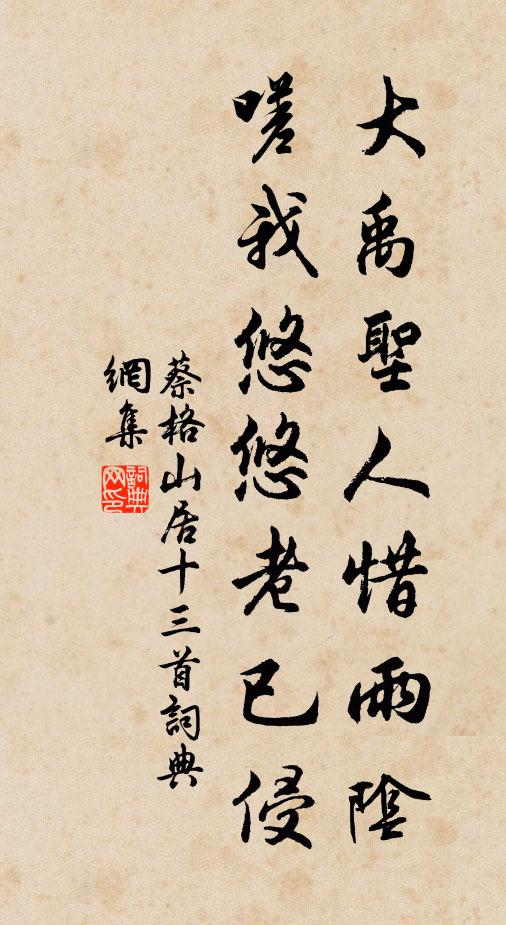 大禹聖人惜雨陰
嗟我悠悠老已侵
蔡格山居十三首詞典
網集
詞典网印